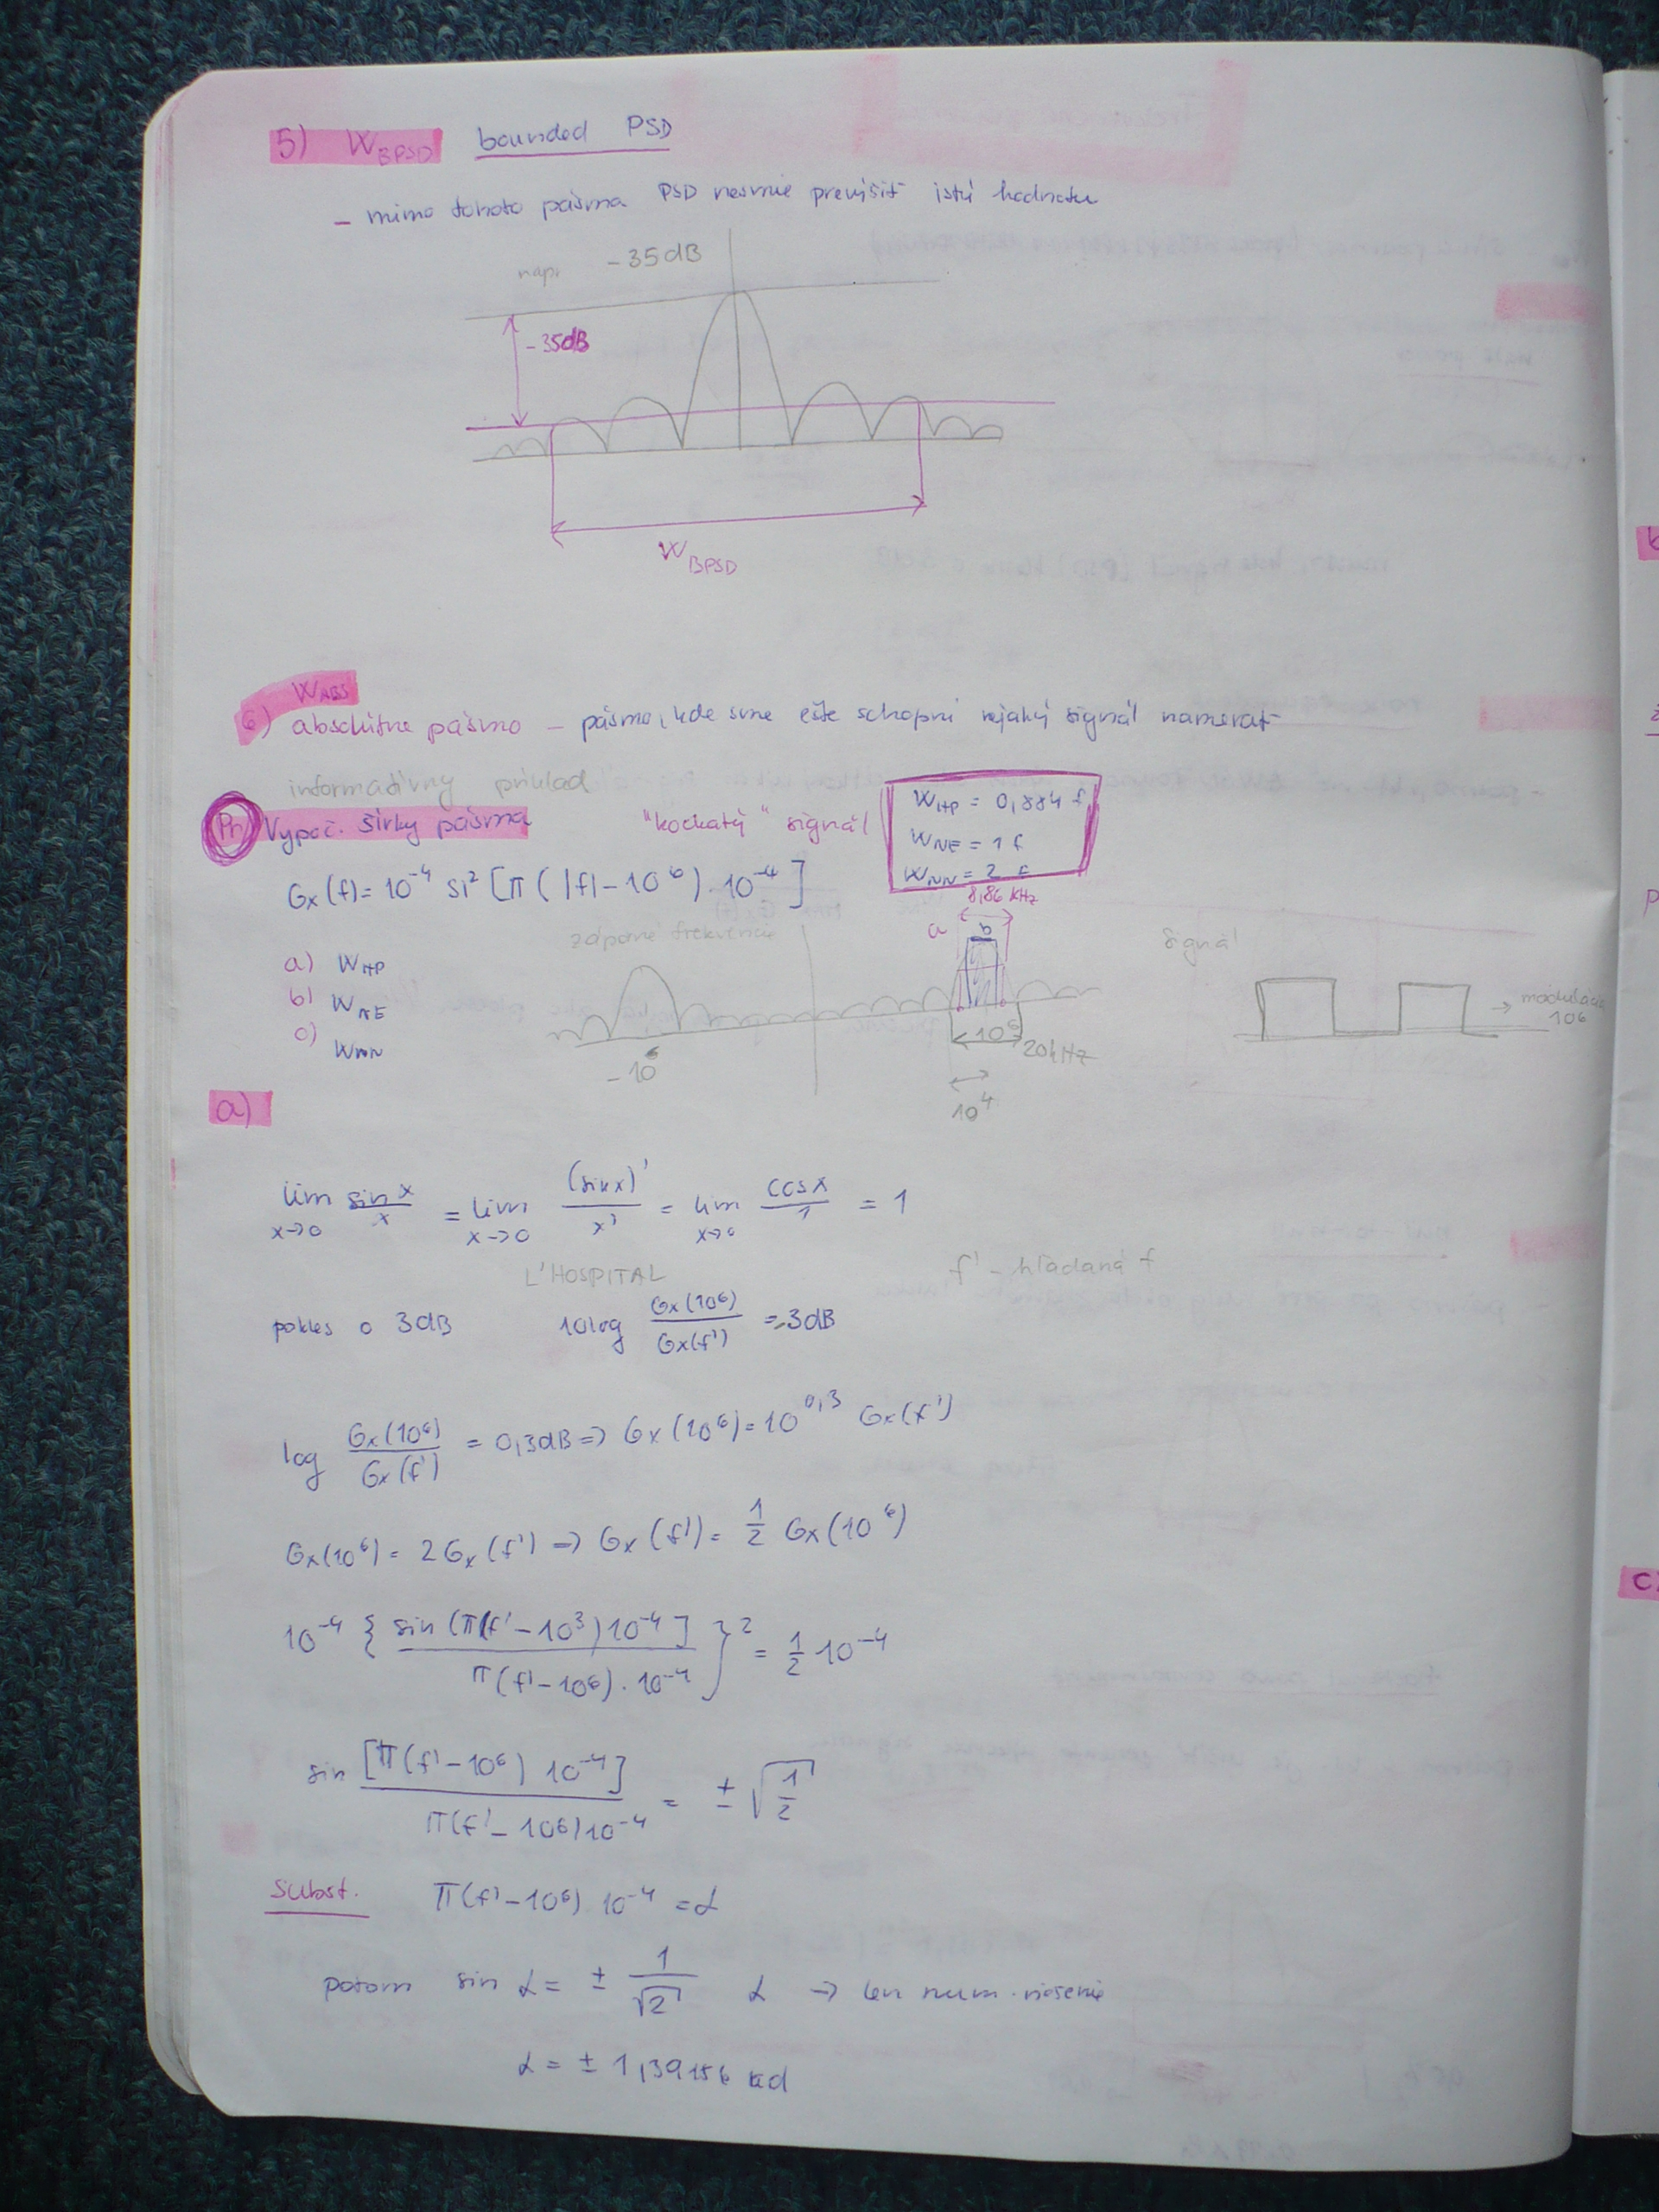 5) W_BPSD bounded PSD
– mimo tohoto pásma PSD nesmie prevýšiť istú hodnotu
napr. -35dB
-35dB
W_BPSD
W_ABS
6) absolútne pásmo – pásmo, kde sme ešte schopní nejaký signál namerať
informatívny príklad
Pr) Vypoč. šírky pásma "kockatý" signál
W_HP = 0,884 f
W_NE = 1 f
W_NN = 2 f
Gx(f) = 10^-4 si² [π(|f| - 10^6) . 10^-4]
8,86 kHz
záporné frekvencie
a b
signál
a) W_HP
b) W_NE
c) W_NN
→ modulácia
10^6
-10^6
10^6
20kHz
10^4
a)
lim x→0 sin x / x = lim x→0 (sin x)' / x' = lim x→0 cos x / 1 = 1
L'HOSPITAL
f' – hľadaná f
pokles o 3dB 10log Gx(10^6) / Gx(f') = 3dB
log Gx(10^6) / Gx(f') = 0,3dB => Gx(10^6) = 10^0,3 Gx(f')
Gx(10^6) = 2Gx(f') => Gx(f') = 1/2 Gx(10^6)
10^-4 { sin (π(f' - 10^3) 10^-4] / π(f' - 10^6) . 10^-4 }² = 1/2 10^-4
sin [π(f' - 10^6) 10^-4] / π(f' - 10^6) 10^-4 = ± √1/2
Subst. π(f' - 10^6) 10^-4 = α
potom sin α = ± 1/√2 α → len num. riešenie
α = ± 1,39156 rad